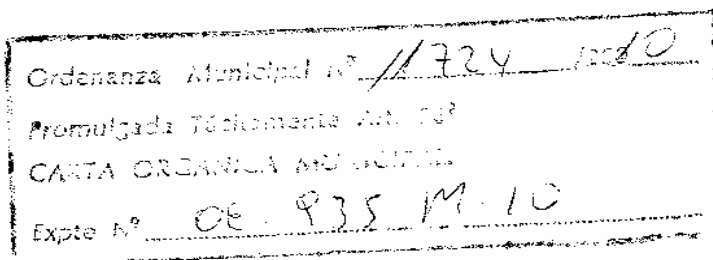 Ordenanza Municipal Nº 11724 /2010
Promulgada Tácitamente Art. 76º
CARTA ORGANICA MUNICIPAL
Expte Nº OE 935 M-10